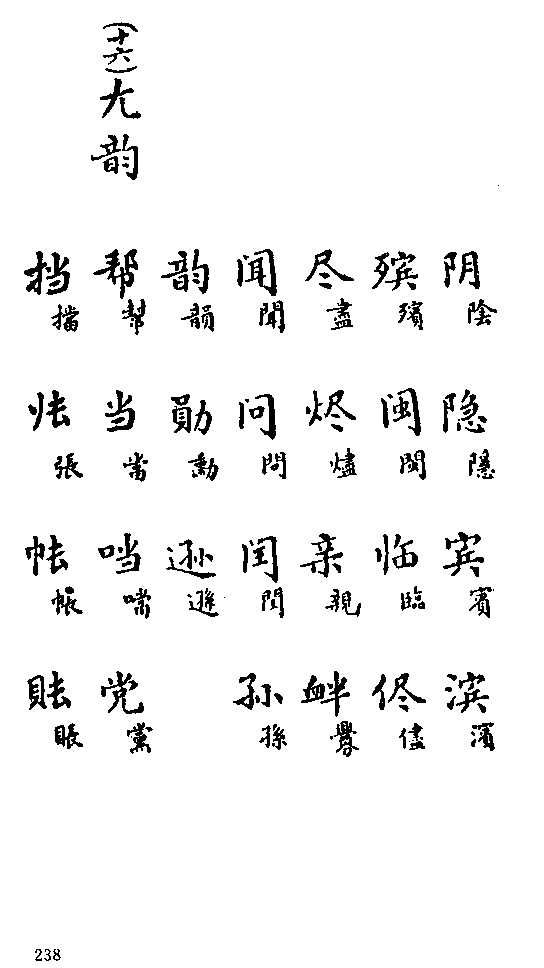 阴陰 隐隱 宾賓 滨濱
殡殯 闽閩 临臨 侭儘
尽盡 烬燼 亲親 衅釁
闻聞 问問 闰閏 孙孫
韵韻 勛勳 逊遜
(十六)尢韵
帮幫 当當 𪠽噹 党黨
挡擋 张張 帐帳 账賬
238